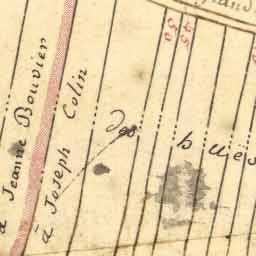 à Jeanne Bouvier
à Joseph Colin
des
buès
50
45